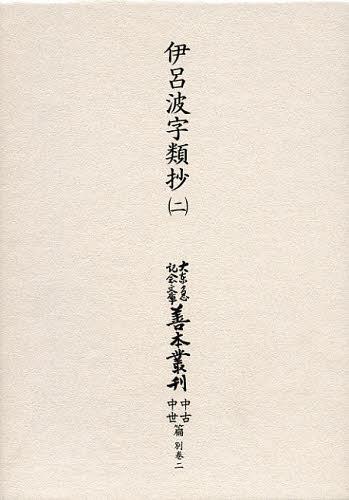 伊呂波字類抄(二)
大東急記念文庫善本叢刊中古中世篇別巻二